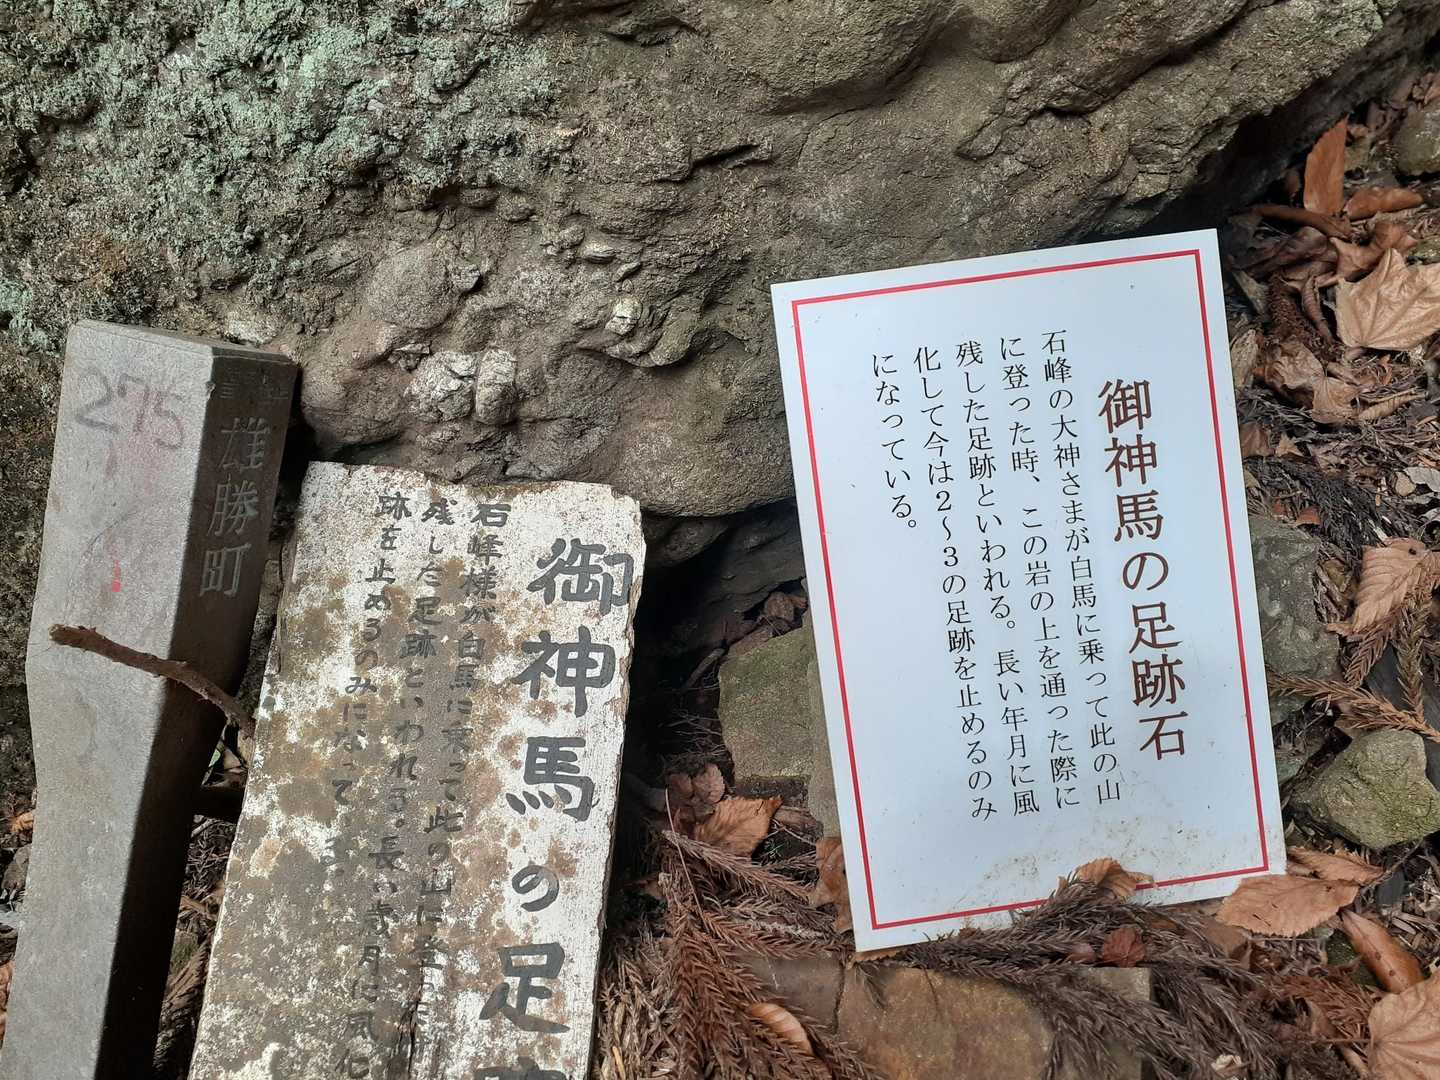 御神馬の足跡石
石峰の大神さまが白馬に乗って此の山
に登った時、この岩の上を通った際に
残した足跡といわれる。長い年月に風
化して今は2〜3の足跡を止めるのみ
になっている。
御神馬の足
石峰様が白馬に乗って此の山に登った
残した足跡といわれる。長い歳月に風化
跡を止めるのみになって
雄勝町
275